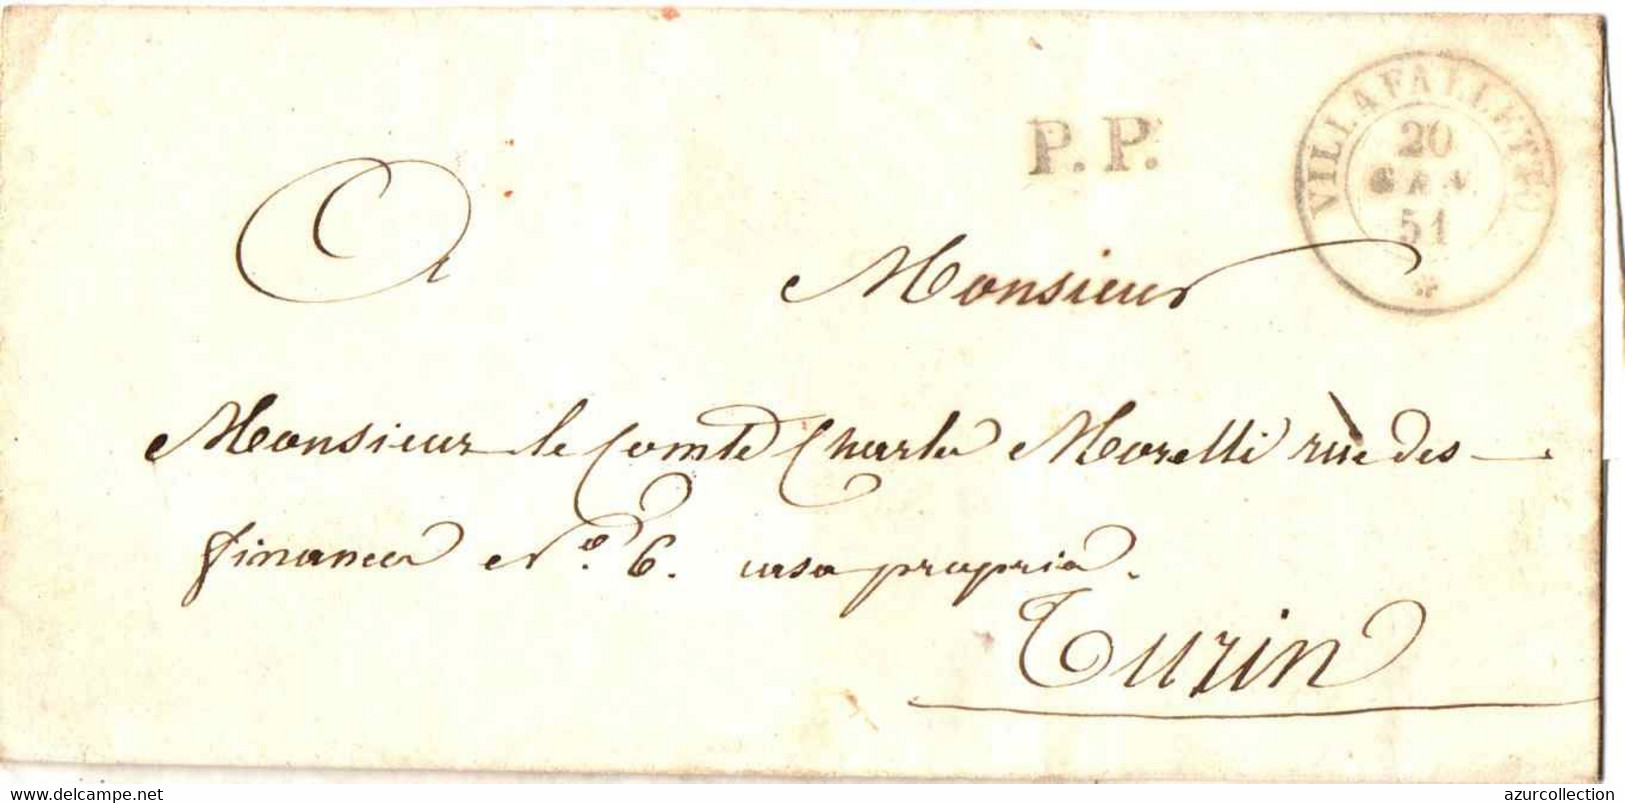 P.P.
VILLAFALLETTO
20
GEN
51
A
Monsieur
Monsieur le Comte Charles Morelli rüe des
finances N.º 6. casa propria.
Turin
www.delcampe.net
azurcollection